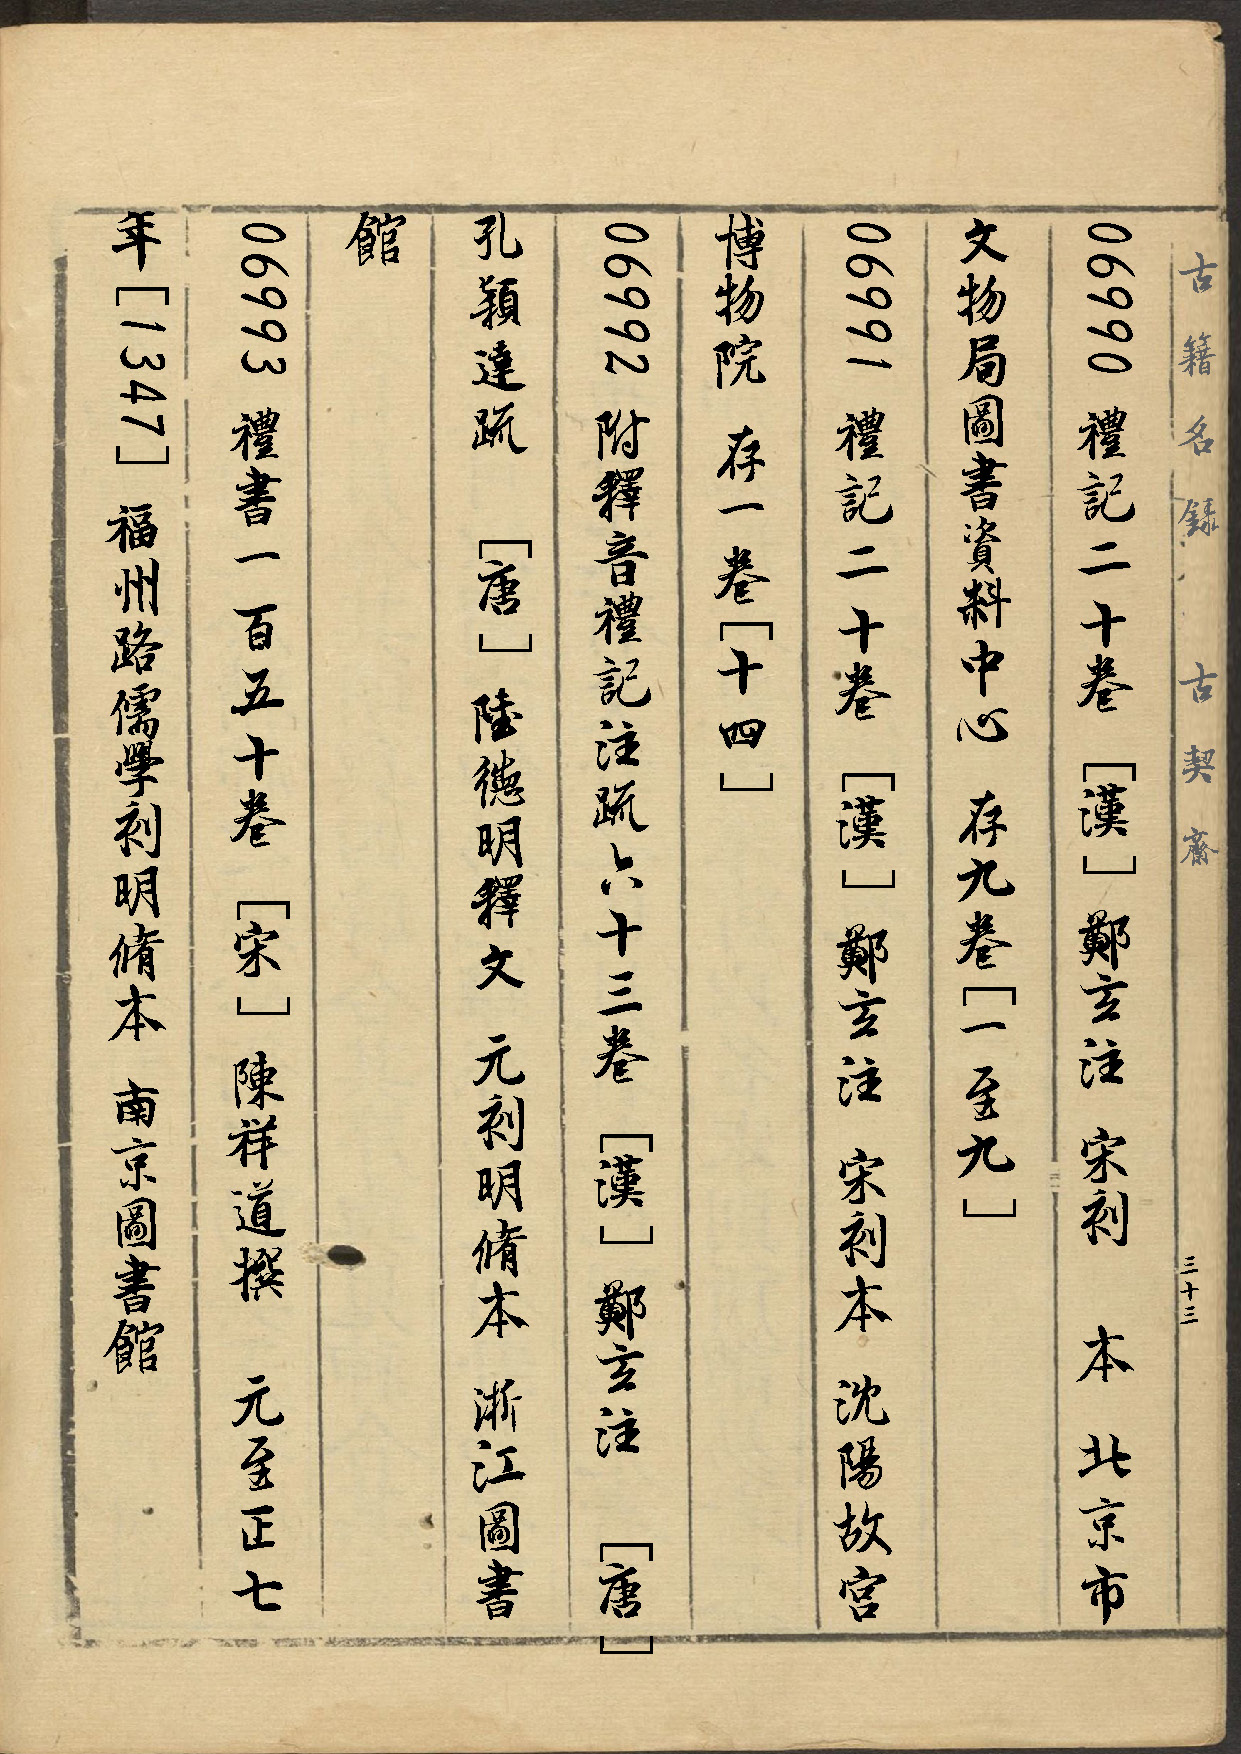 古籍名録 古契齋 三十三
06990 禮記二十卷 [漢] 鄭玄注 宋刻 本 北京市
文物局圖書資料中心 存九卷[一至九]
06991 禮記二十卷 [漢] 鄭玄注 宋刻本 沈陽故宮
博物院 存一卷[十四]
06992 附釋音禮記注疏六十三卷 [漢] 鄭玄注 [唐]
孔穎達疏 [唐] 陸德明釋文 元刻明脩本 浙江圖書
館
06993 禮書一百五十卷 [宋] 陳祥道撰 元至正七
年[1347] 福州路儒學刻明脩本 南京圖書館